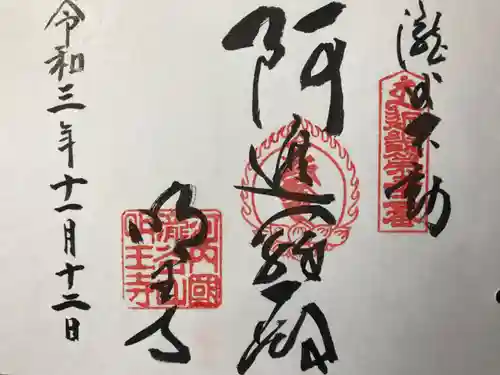 瀧谷不動
阿遮羅
明王寺
河内國
瀧谷山
明王寺
令和三年十一月十二日